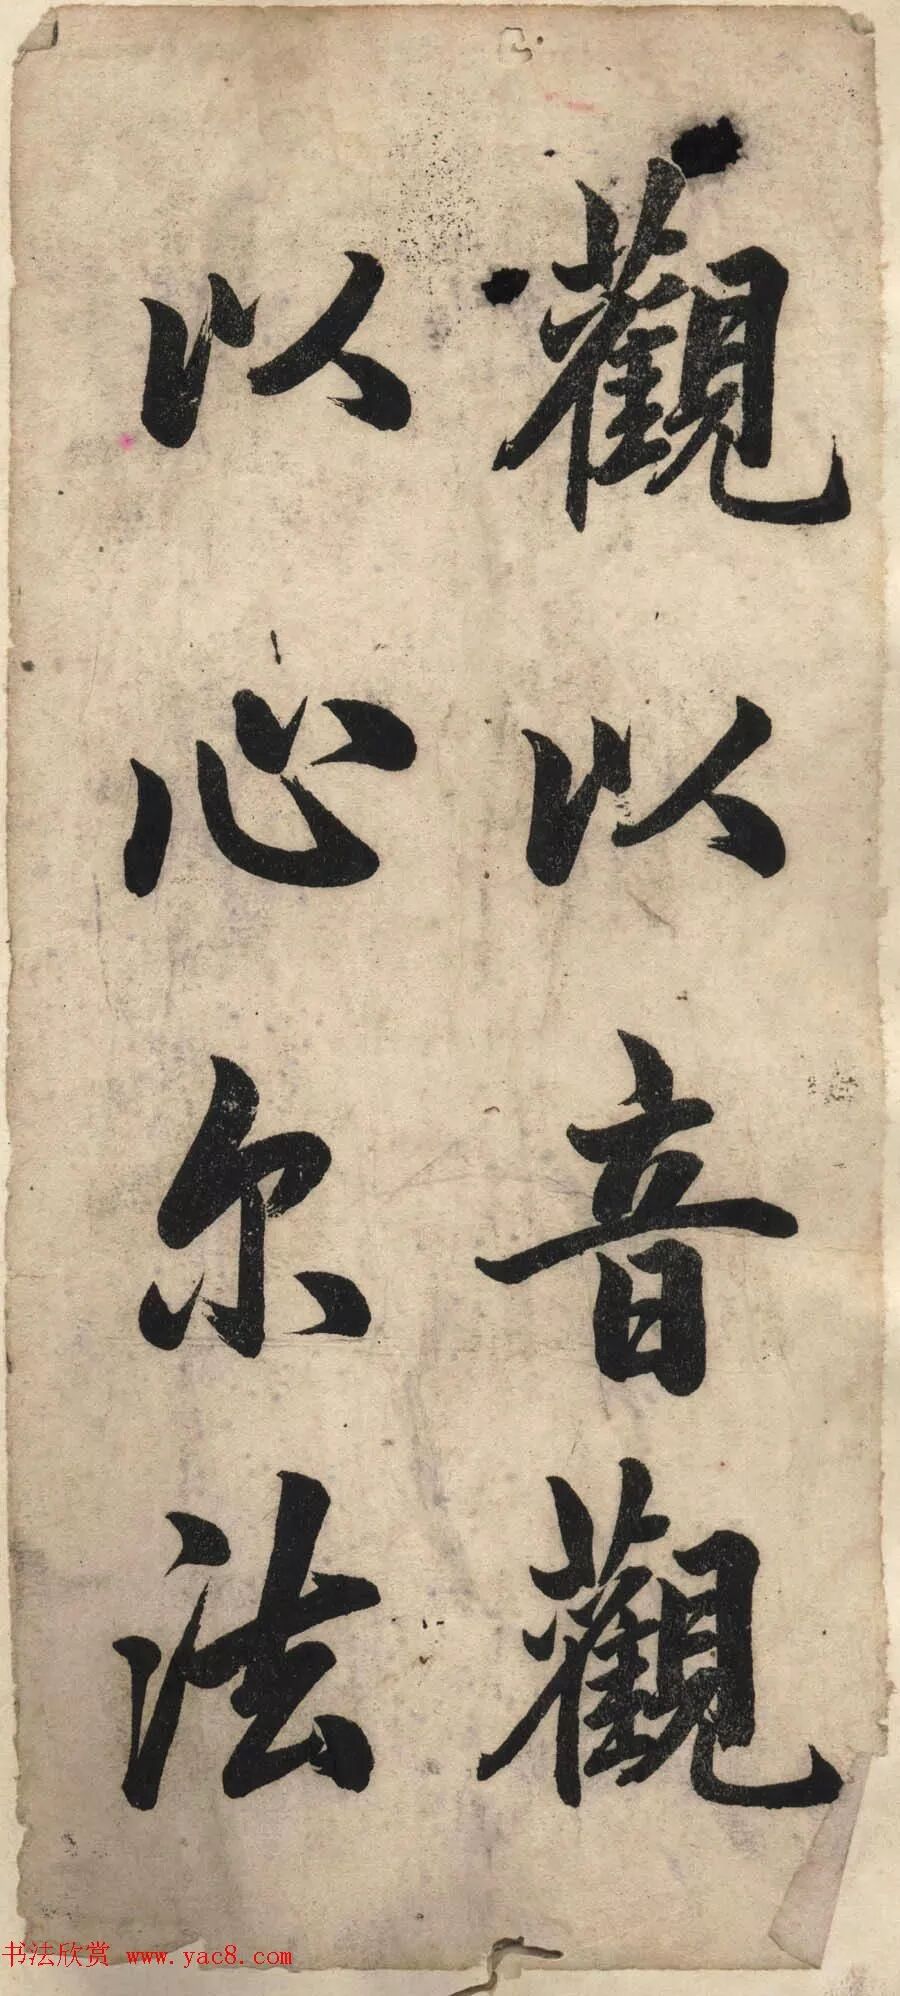 觀以音觀
以心尔法
书法欣赏 www.yac8.com